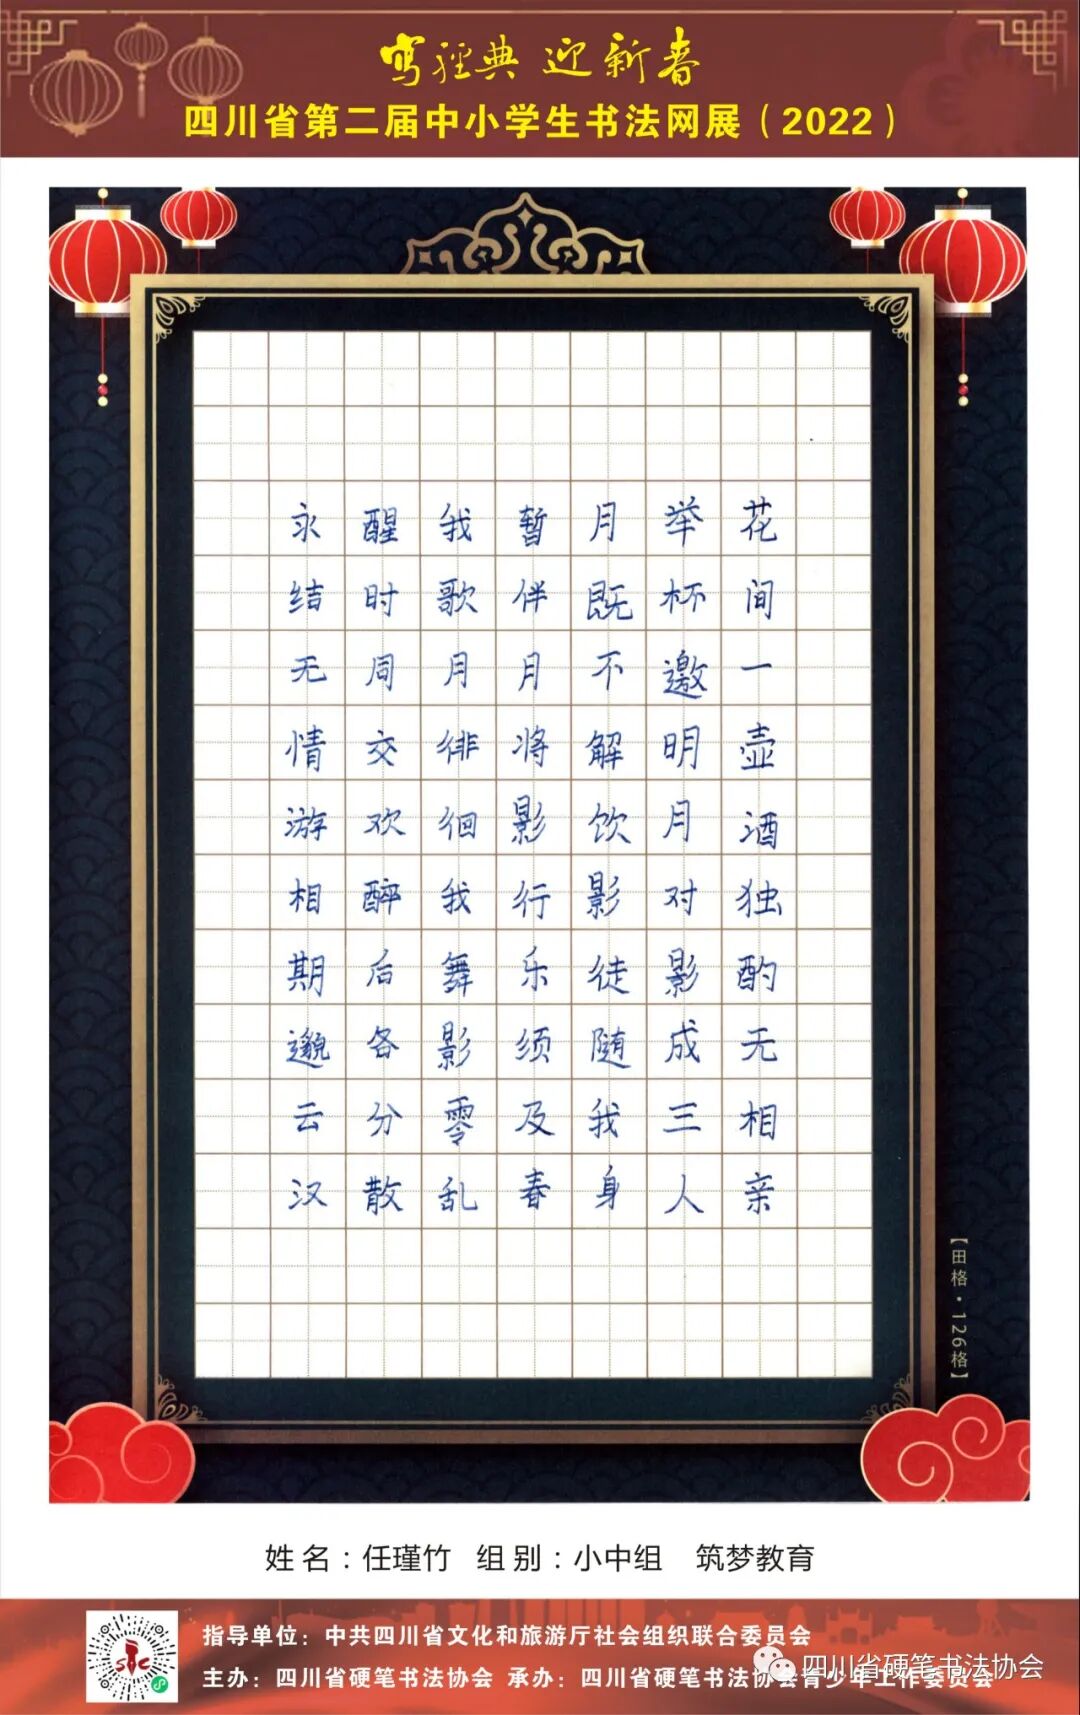 写经典 迎新春
四川省第二届中小学生书法网展（2022）
花间一壶酒独酌无相亲
举杯邀明月对影成三人
月既不解饮影徒随我身
暂伴月将影行乐须及春
我歌月徘徊我舞影零乱
醒时同交欢醉后各分散
永结无情游相期邈云汉
【田格·126格】
姓名：任瑾竹 组别：小中组 筑梦教育
指导单位：中共四川省文化和旅游厅社会组织联合委员会
主办：四川省硬笔书法协会 承办：四川省硬笔书法协会青少年工作委员会
四川省硬笔书法协会